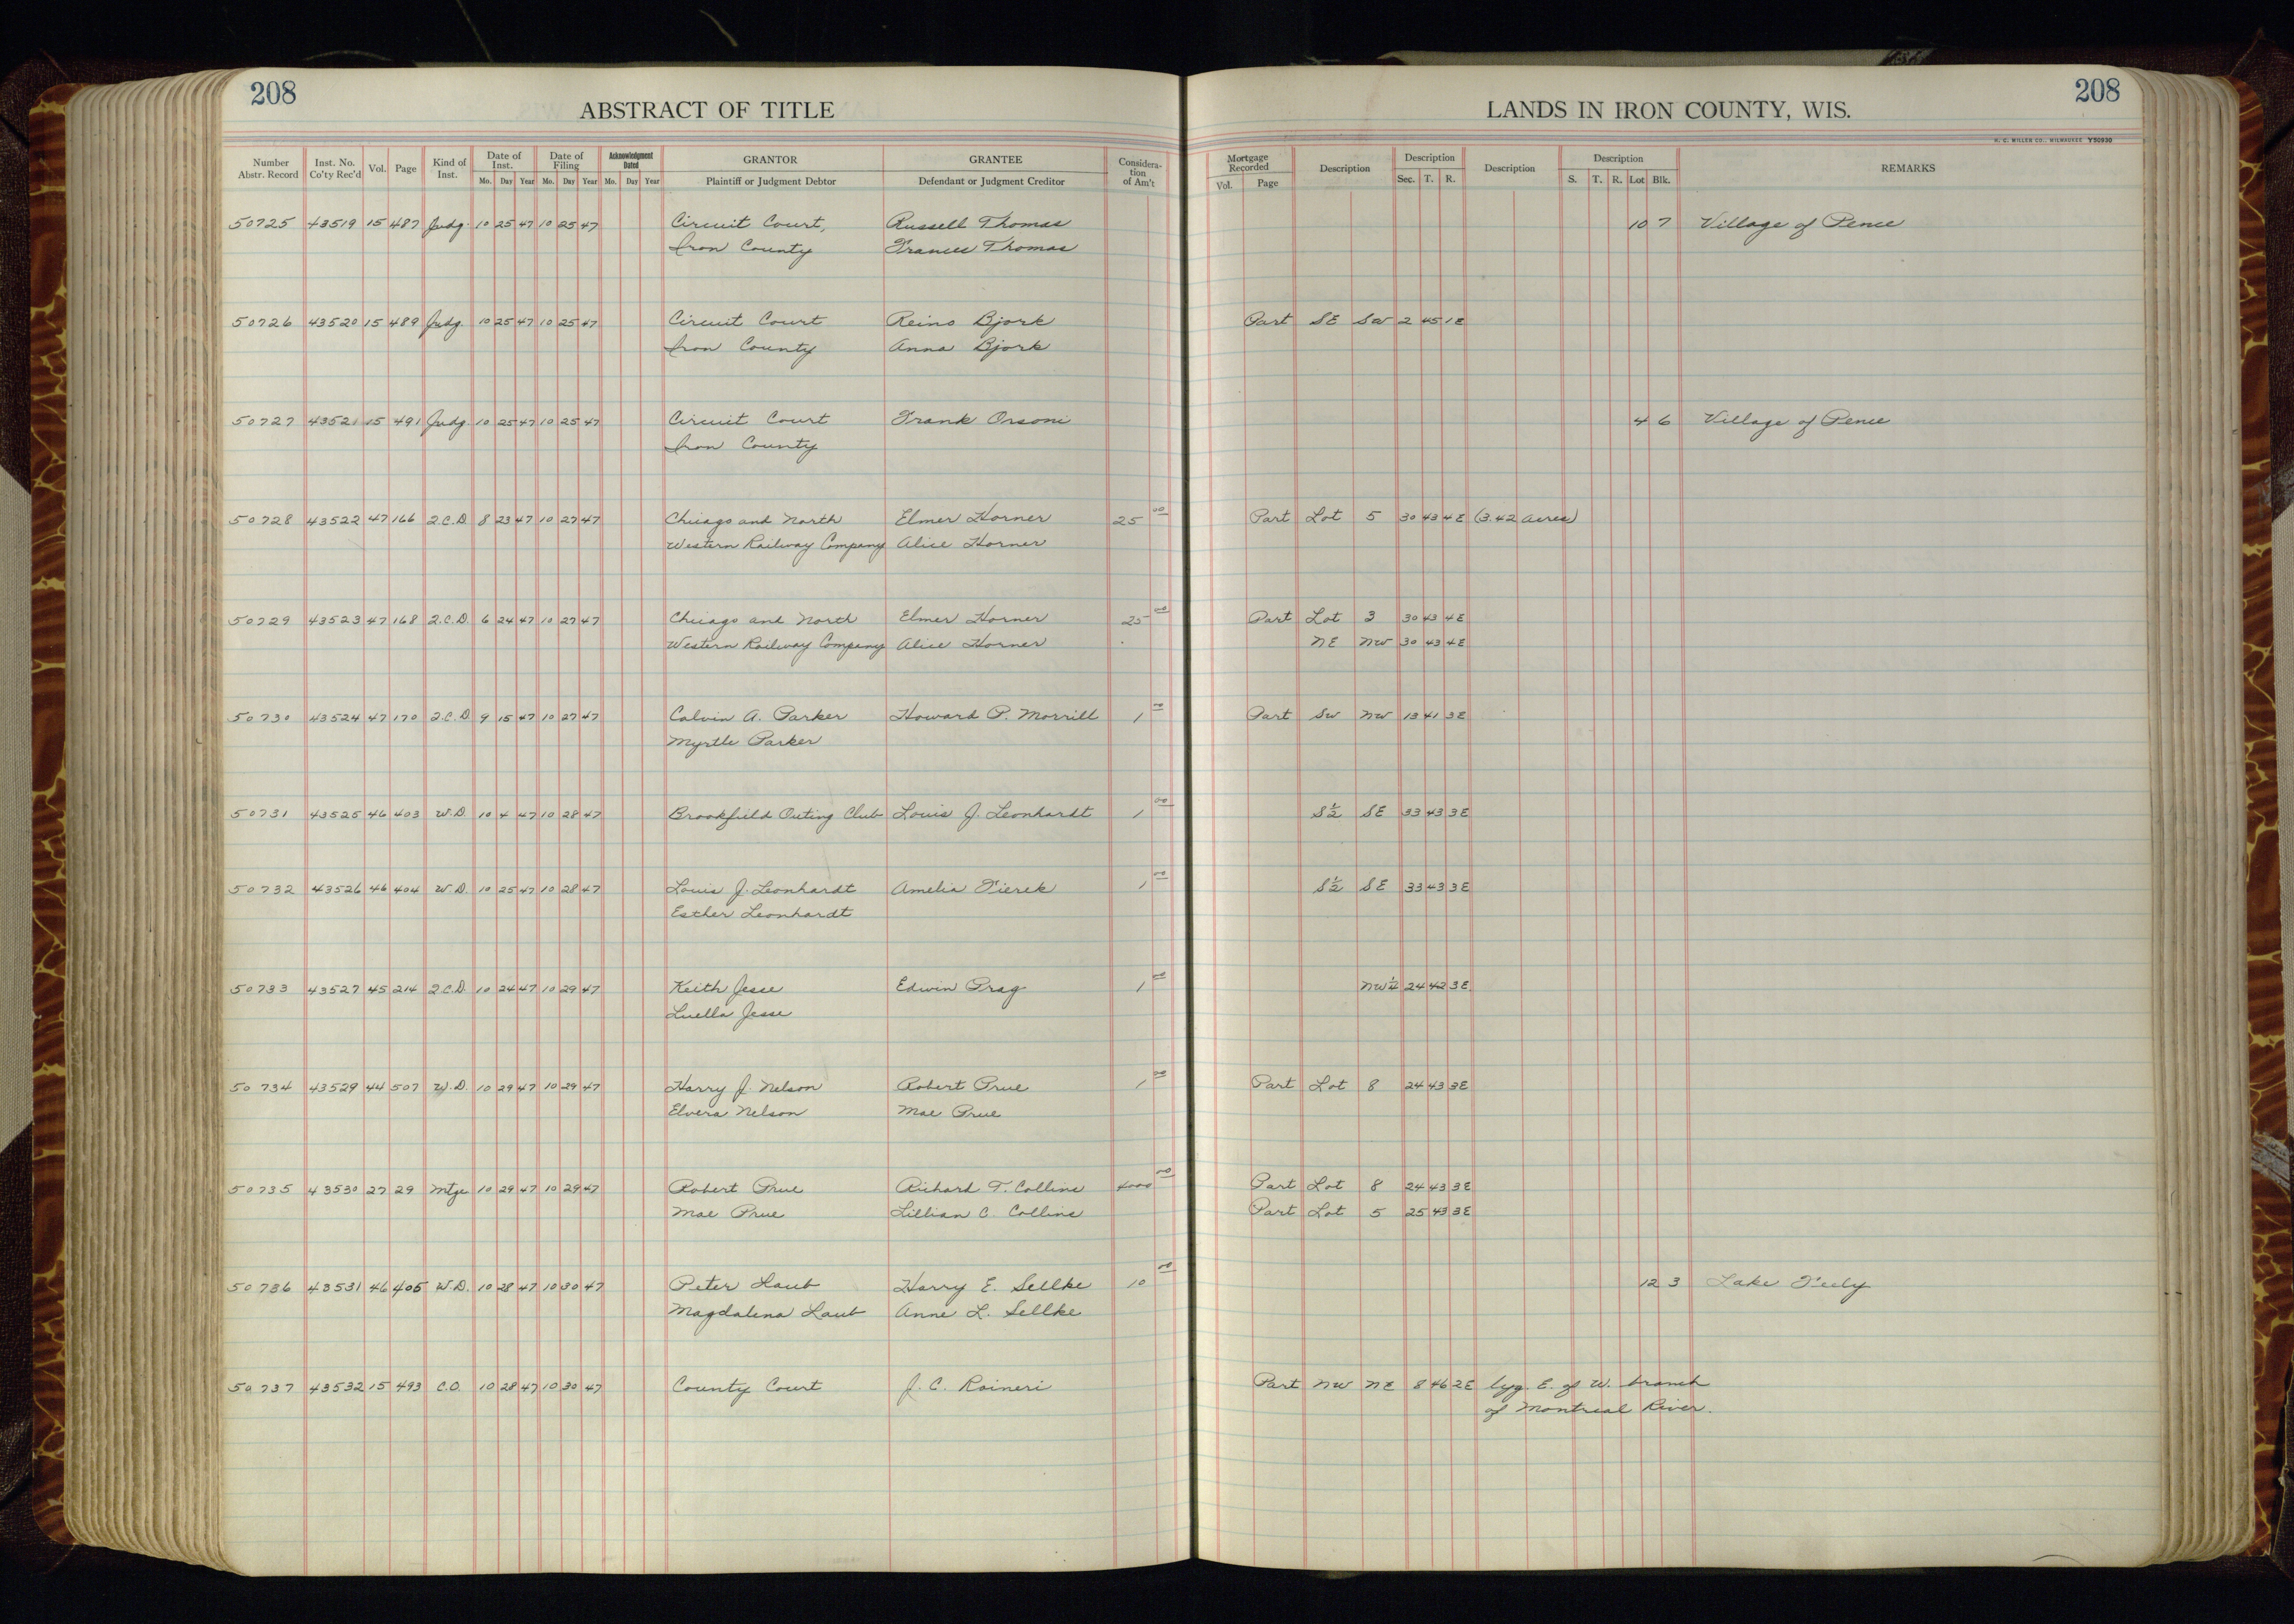 208
ABSTRACT OF TITLE
LANDS IN IRON COUNTY, WIS.
208
H. C. MILLER CO., MILWAUKEE Y50930
Number Abstr. Record Inst. No. Co'ty Rec'd Vol. Page Kind of Inst. Date of Inst. Mo. Day Year Date of Filing Mo. Day Year Acknowledgment Dated Mo. Day Year GRANTOR Plaintiff or Judgment Debtor GRANTEE Defendant or Judgment Creditor Consideration of Am't Mortgage Recorded Vol. Page Description Description Sec. T. R. Description Description S. T. R. Lot Blk. REMARKS
50725 43519 15 487 Judg. 10 25 47 10 25 47 Circuit Court, Russell Thomas 10 7 Village of Pence
Iron County Frances Thomas
50726 43520 15 489 Judg. 10 25 47 10 25 47 Circuit Court Reino Bjork Part SE SW 2 45 1E
Iron County Anna Bjork
50727 43521 15 491 Judg. 10 25 47 10 25 47 Circuit Court Frank Orsoni 4 6 Village of Pence
Iron County
50728 43522 47 166 2.C.D 8 23 47 10 27 47 Chicago and North Elmer Horner 25 00 Part Lot 5 30 43 4E (3.42 acres)
Western Railway Company Alice Horner
50729 43523 47 168 2.C.D. 6 24 47 10 27 47 Chicago and North Elmer Horner 25 00 Part Lot 3 30 43 4E
Western Railway Company Alice Horner NE NW 30 43 4E
50730 43524 47 170 2.C.D. 9 15 47 10 27 47 Calvin A. Parker Howard P. Morrill 1 00 Part SW NW 13 41 3E
Myrtle Parker
50731 43525 46 403 W.D. 10 4 47 10 28 47 Brookfield Outing Club Louis J. Leonhardt 1 00 S½ SE 33 43 3E
50732 43526 46 404 W.D. 10 25 47 10 28 47 Louis J. Leonhardt Amelia Fierek 1 00 S½ SE 33 43 3E
Esther Leonhardt
50733 43527 45 214 2.C.D. 10 24 47 10 29 47 Keith Jesse Edwin Prag 1 00 NW¼ 24 42 3E
Luella Jesse
50734 43529 44 507 W.D. 10 29 47 10 29 47 Harry J. Nelson Robert Prue 1 00 Part Lot 8 24 43 3E
Elvera Nelson Mae Prue
50735 43530 27 29 Mtge 10 29 47 10 29 47 Robert Prue Richard T. Collins 4000 00 Part Lot 8 24 43 3E
Mae Prue Lillian C. Collins Part Lot 5 25 43 3E
50736 43531 46 405 W.D. 10 28 47 10 30 47 Peter Laub Harry E. Sellke 10 00 12 3 Lake Feely
Magdalena Laub Anne L. Sellke
50737 43532 15 493 C.O. 10 28 47 10 30 47 County Court J. C. Raineri Part NW NE 8 46 2E lyg. E. of W. branch
of Montreal River.